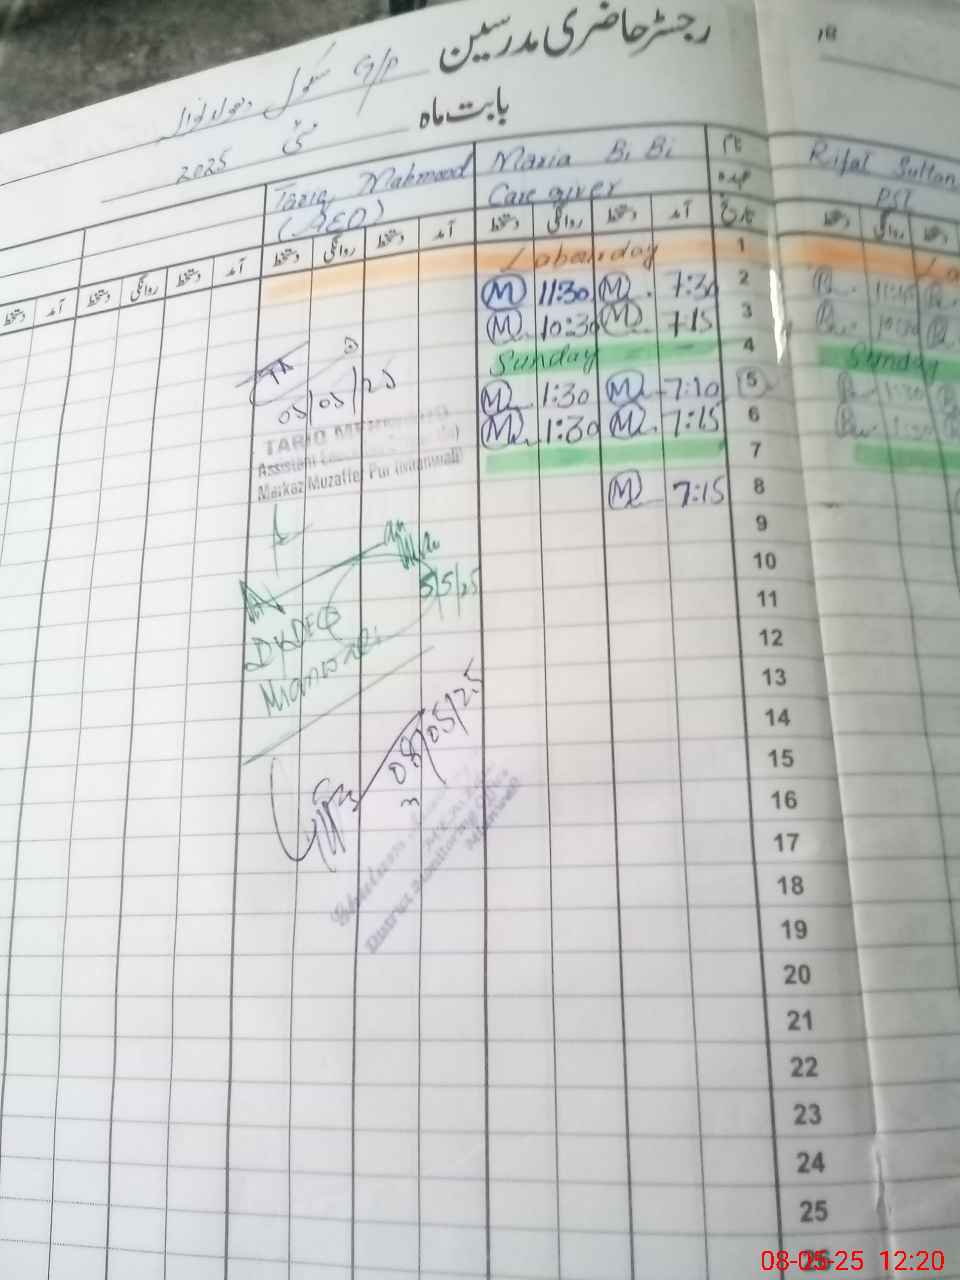 رجسٹر حاضری مدرسین
G/P سکول
بابت ماہ مئی 2025
نام Maria Bi Bi Tariq Mahmood
عہدہ Care giver (AEO)
تاریخ آمد دستخط روانگی دستخط آمد دستخط روانگی دستخط آمد دستخط روانگی دستخط آمد دستخط
Rifat Sultan
PST
دستخط روانگی دستخط
1 Labourday
2 7:30 M 11:30 M
3 7:15 M 10:30 M
4 Sunday Sunday
5 7:10 M 1:30 M 1:30
6 7:15 M 1:30 M 1:30
7
8 7:15 M
9
10
11
12
13
14
15
16
17
18
19
20
21
22
23
24
25
26
05/05/25
TARIQ MEHMOOD
Assistant
Markaz Muzaffer Pur (Mianwali)
5/5/25
Dy DEO
Mianwali
08/05/25
District Monitoring Officer
Mianwali
08-05-25 12:20